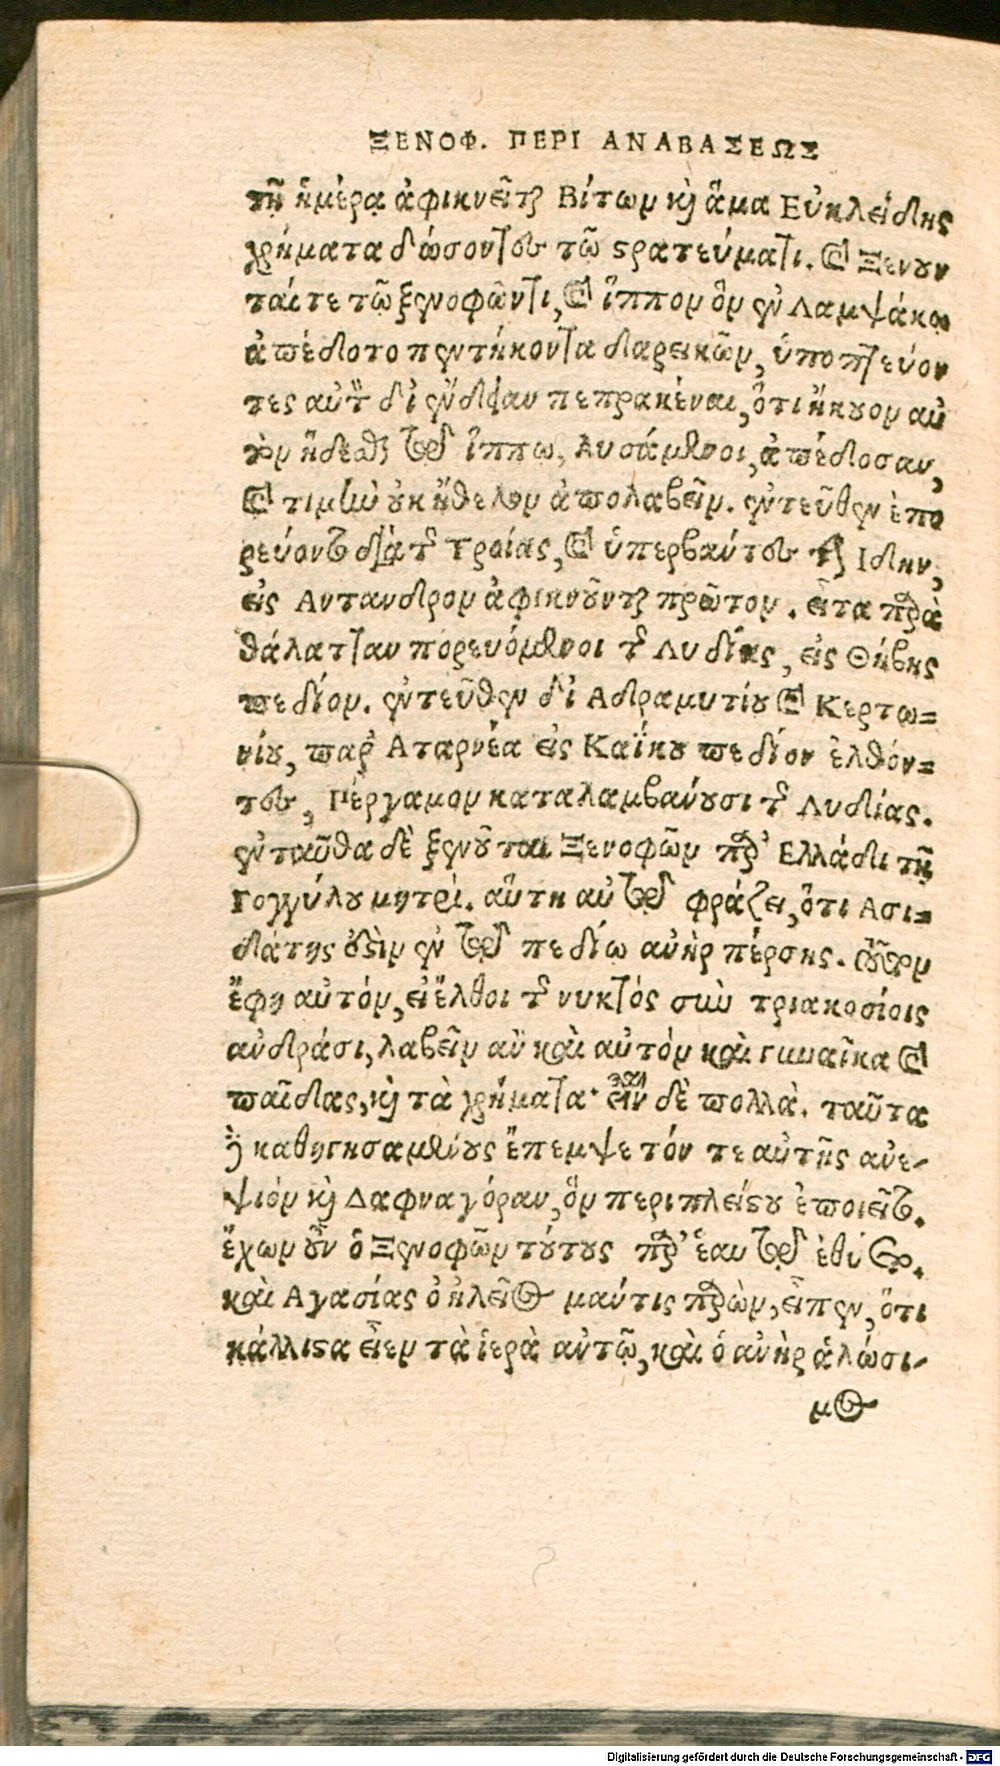 ΞΕΝΟΦ. ΠΕΡΙ ΑΝΑΒΑΣΕΩΣ
τῇ ἡμέρᾳ ἀφικνεῖται Βίτων καὶ ἅμα Εὐκλείδης
χρήματα δώσοντες τῷ στρατεύματι. καὶ ξενουν
ταί τε τῷ ξενοφῶντι, καὶ ἵππον ὃν ἐν Λαμψάκῳ
ἀπέδοτο πεντήκοντα δαρεικῶν, ὑποπτεύον
τες αὐτὸν δι' ἔνδειαν πεπρακέναι, ὅτι ἤκουον αὐ
τὸν ἥδεσθαι τῷ ἵππῳ, λυσάμενοι, ἀπέδοσαν,
καὶ τιμὴν οὐκ ἤθελον ἀπολαβεῖν. ἐντεῦθεν ἐπο
ρεύοντο διὰ τῆς Τροίας, καὶ ὑπερβάντες τὴν Ιδην,
εἰς Αντανδρον ἀφικνοῦνται πρῶτον. εἶτα παρὰ
θάλατταν πορευόμενοι τῆς Λυδίας, εἰς Θήβης
πεδίον. ἐντεῦθεν δι' Αδραμυτίου καὶ Κερτω=
νίου, παρ' Αταρνέα εἰς Καΐκου πεδίον ἐλθόν=
τες, Πέργαμον καταλαμβάνουσι τῆς Λυδίας.
ἐνταῦθα δὲ ξενοῦται Ξενοφῶν παρ' Ελλάδι τῇ
Γογγύλου μητρὶ. αὕτη αὐτῷ φράζει, ὅτι Ασι=
δάτης ἐστὶν ἐν τῷ πεδίῳ ἀνὴρ πέρσης. τοῦτον
ἔφη αὐτόν, εἰ ἔλθοι τῆς νυκτός σὺν τριακοσίοις
ἀνδράσι, λαβεῖν ἂν καὶ αὐτὸν καὶ γυναῖκα καὶ
παῖδας, καὶ τὰ χρήματα· εἶναι δὲ πολλὰ. ταῦτα
δὲ καθηγησαμένους ἔπεμψε τόν τε αὐτῆς ἀνε-
ψιὸν καὶ Δαφναγόραν, ὃν περὶ πλείστου ἐποιεῖτο.
ἔχων οὖν ὁ Ξενοφῶν τούτους παρ' ἑαυτῷ ἐθύετο.
καὶ Αγασίας ὁ ἠλεῖος μάντις παρὼν, εἶπεν, ὅτι
κάλλιστα εἶεν τὰ ἱερὰ αὐτῷ, καὶ ὁ ἀνὴρ ἁλώσι-
μος
Digitalisierung gefördert durch die Deutsche Forschungsgemeinschaft - DFG